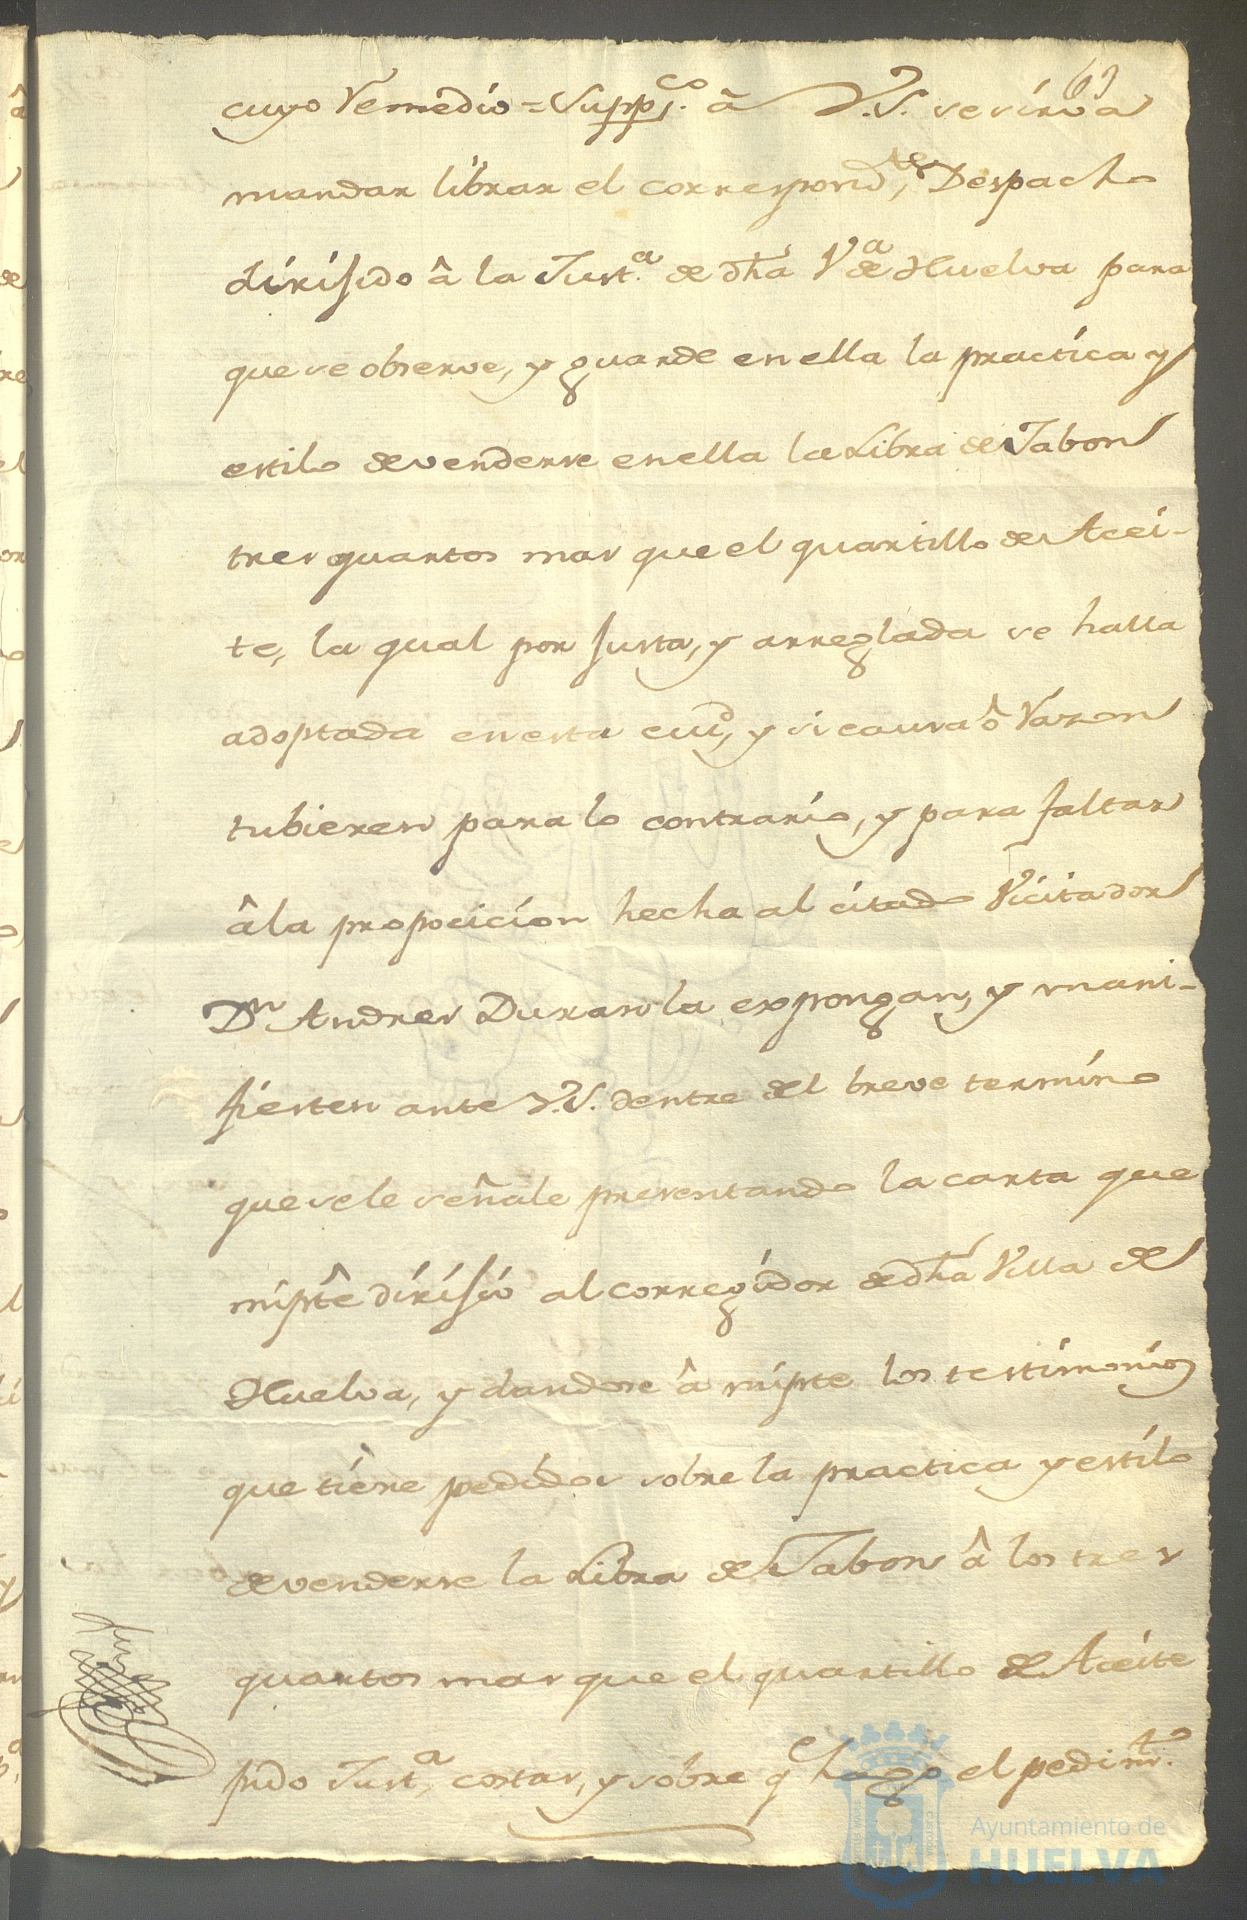 63
cuyo Remedio = Suppco. â V.S. se sirva
mandar librar el correspondte, Despacho
dirijido â la Justa. de dha Va de Huelva para
que se observe, y guarde en ella la practica y
estilo de venderse en ella la Libra de Jabon
tres quartos mas que el quartillo de Acei-
te, la qual por justa, y arreglada se halla
adoptada en esta ciud, y si causa ô Razon
tubieren para lo contrario, y para faltar
â la proposicion hecha al citado Vicitador
Dn Andres Duran la expongan, y mani-
fiesten ante V.S. dentro del breve termino
que se le señale presentando la carta que
mi pte dirijió al corregidor de dha Villa de
Huelva, y dandose â mi pte los testimonios
que tiene pedidos sobre la practica y estilo
de venderse la Libra de Jabon â los tres
quartos mas que el quartillo de Aceite
pido Justa, costas, y sobre qe hago el pedimto.
Ayuntamiento de
HUELVA